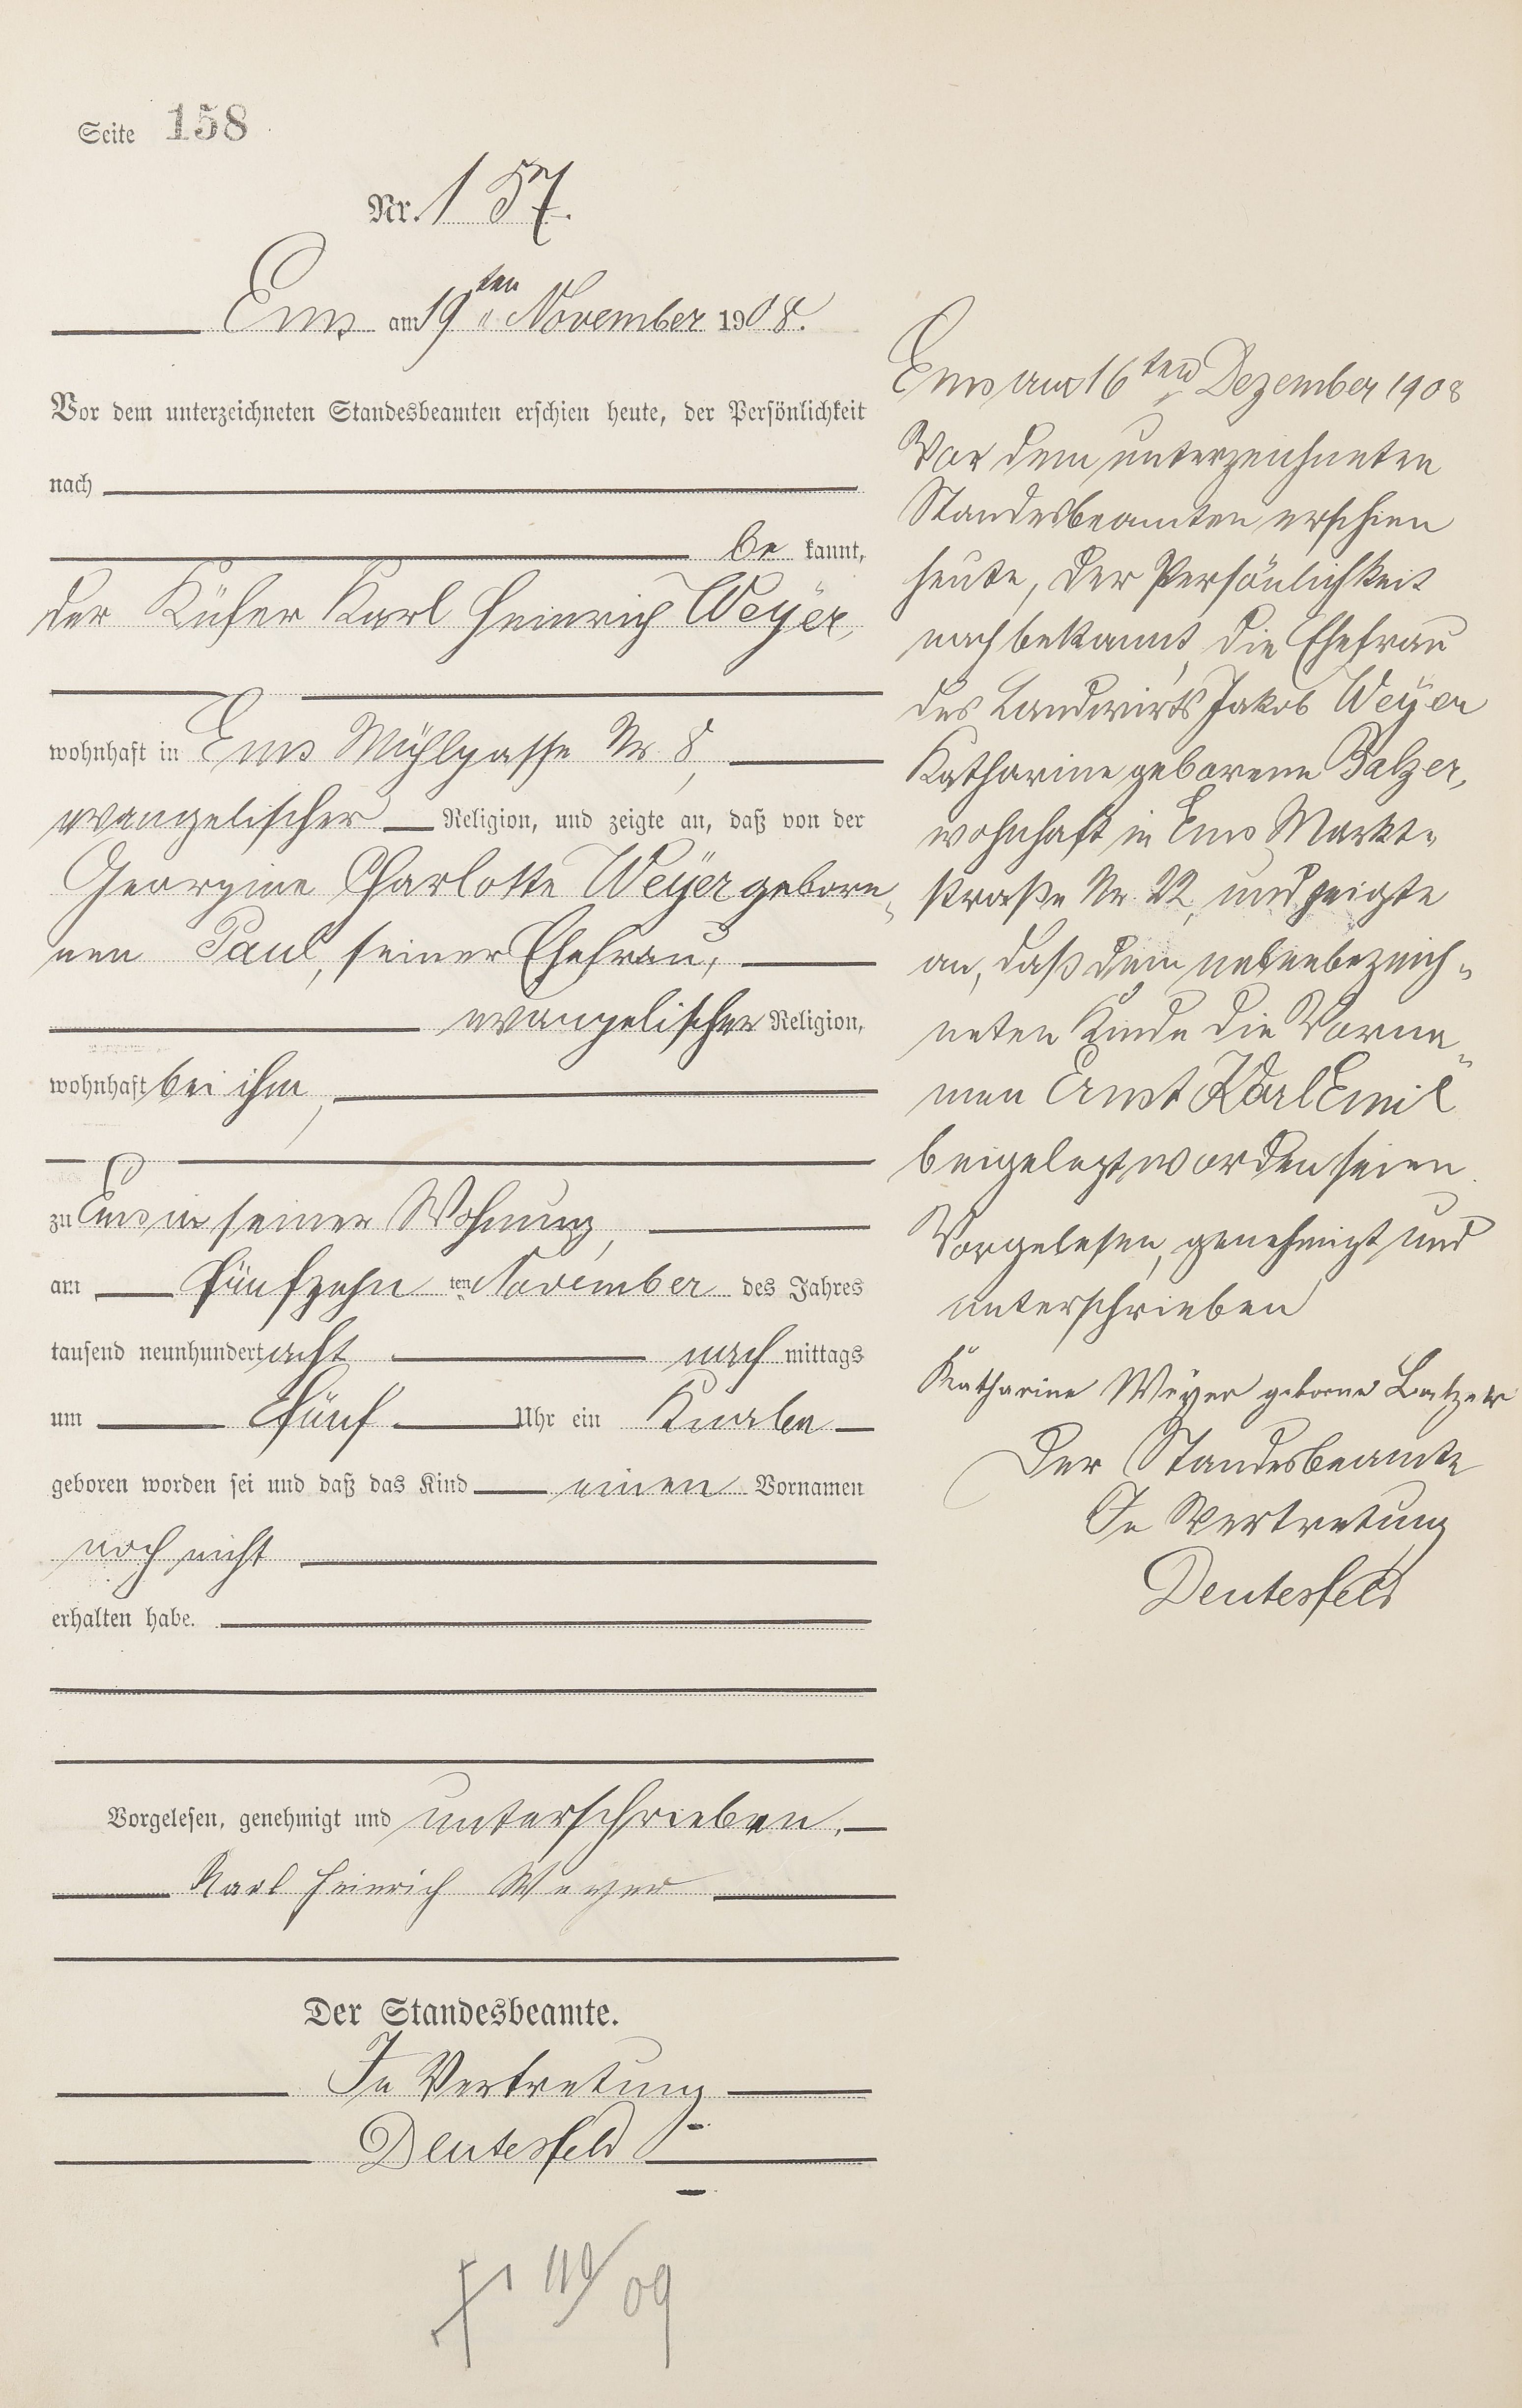 Seite 158
Nr. 157.
Ems am 19ten November 1908.
Vor dem unterzeichneten Standesbeamten erschien heute, der Persönlichkeit
nach
be kannt,
der Küfer Karl Heinrich Weyer,
wohnhaft in Ems Mühlgasse Nr 8,
evangelischer Religion, und zeigte an, daß von der
Georgine Charlotte Weyer gebore„
nen Paul, seiner Ehefrau,
evangelischer Religion,
wohnhaft bei ihm,
zu Ems in seiner Wohnung,
am fünfzehn ten November des Jahres
tausend neunhundert acht nach mittags
um fünf Uhr ein Knabe
geboren worden sei und daß das Kind einen Vornamen
noch nicht
erhalten habe.
Vorgelesen, genehmigt und unterschrieben.
Karl Heinrich Weyer
Der Standesbeamte.
In Vertretung
Deutesfeld
09
Ems am 16ten Dezember 1908
Vor dem unterzeichneten
Standesbeamten erschien
heute, der Persönlichkeit
nach bekannt, die Ehefrau
des Landwirts Jakob Weyer
Katharine geborene Balzer,
wohnhaft in Ems Markt„
straße Nr 22, und zeigte
an, daß dem nebenbezeich„
neten Kinde die Vorna„
men Ernst Karl Emil
beigelegt worden seien.
Vorgelesen, genehmigt und
unterschrieben
Katharine Weyer geborene Balzer
Der Standesbeamte
In Vertretung
Deutesfeld